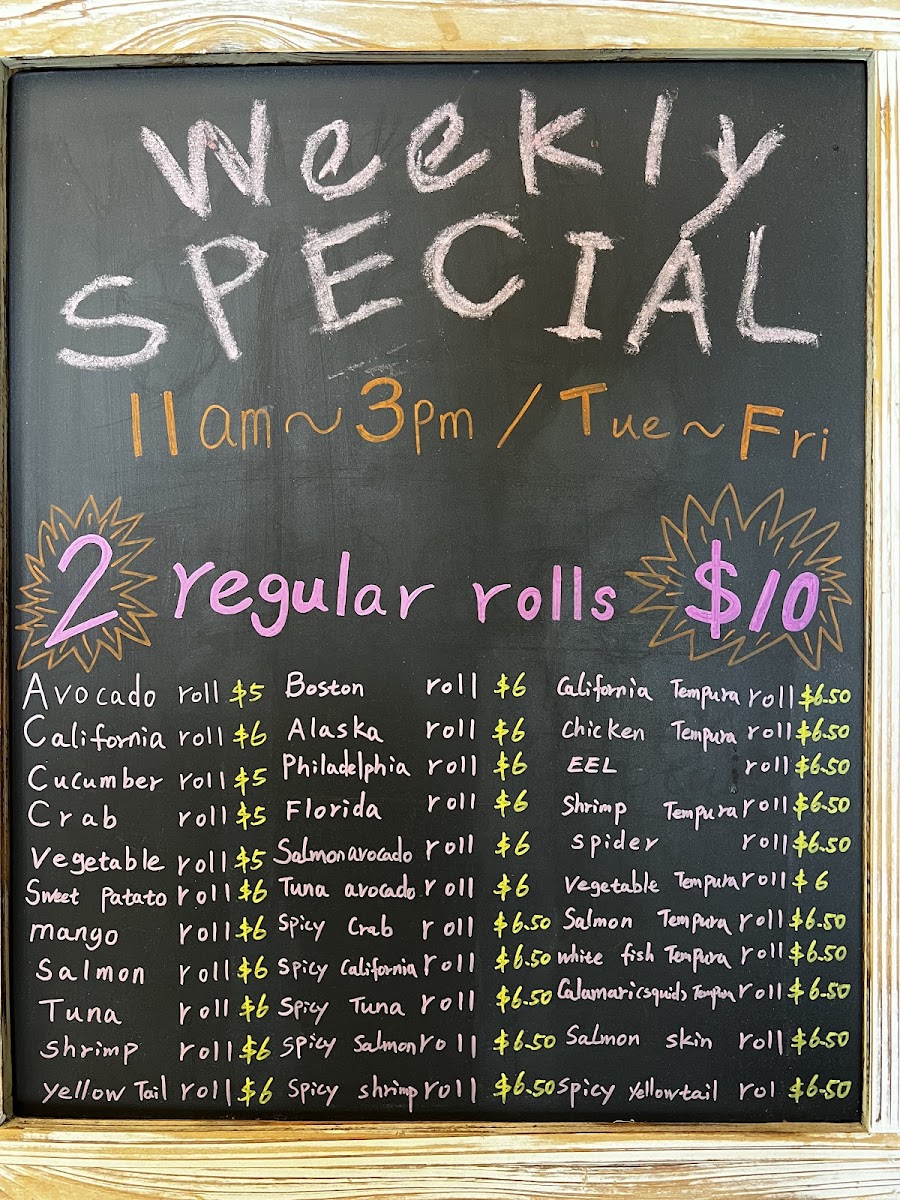 Weekly
SPECIAL
11am~3pm / Tue~Fri
2 regular rolls $10
Avocado roll $5
California roll $6
Cucumber roll $5
Crab roll $5
Vegetable roll $5
Sweet Patato roll $6
mango roll $6
Salmon roll $6
Tuna roll $6
shrimp roll $6
yellow Tail roll $6
Boston roll $6
Alaska roll $6
Philadelphia roll $6
Florida roll $6
Salmon avocado roll $6
Tuna avocado roll $6
Spicy Crab roll $6.50
Spicy California roll $6.50
Spicy Tuna roll $6.50
Spicy Salmon roll $6.50
Spicy shrimp roll $6.50
California Tempura roll $6.50
Chicken Tempura roll $6.50
EEL roll $6.50
Shrimp Tempura roll $6.50
spider roll $6.50
Vegetable Tempura roll $6
Salmon Tempura roll $6.50
white fish Tempura roll $6.50
Calamari(squid) Tempura roll $6.50
Salmon skin roll $6.50
Spicy Yellowtail rol $6.50